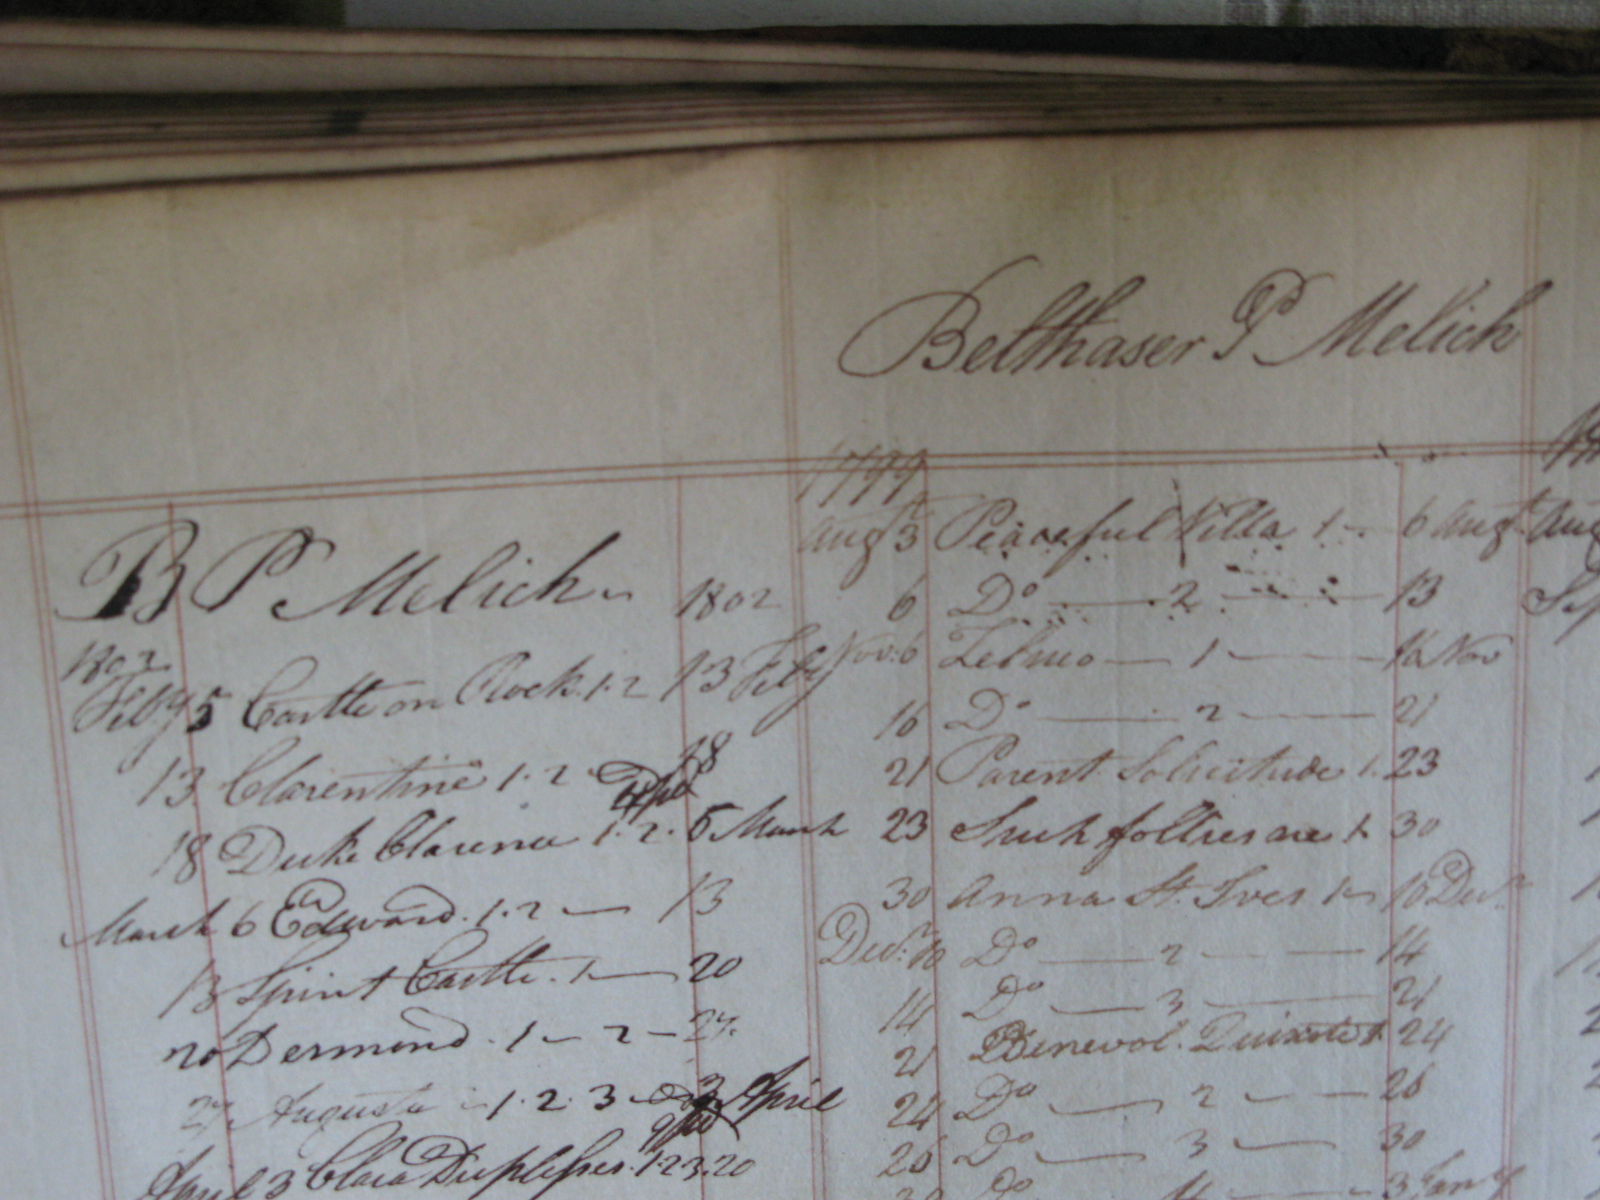 Belthaser P Melich
B P Melich 1802
1802
Feby 5 Castle on Rock 1·2 13 Feby
13 Clarentine 1·2 18
18 Duke Clarence 1·2· 6 March
March 6 Edward 1·2 — 13
13 Spirit Castle 1 — 20
20 Dermond 1 — 2 — 27
27 Augusta 1·2·3 — 3 April
April 3 Clara Duplessis 1·2·3· 20
1799
Augt 3 Peaceful Villa 1 — 6 Augt
6 Do — 2 — 13
Nov: 6 Zelmo — 1 — 16 Nov
16 Do — 2 — 21
21 Parent Solicitude 1· 23
23 Such follies are 1 30
30 Anna St. Ives 1 — 10 Decr
Decr 10 Do — 2 — 14
14 Do — 3 — 21
21 Benevol. Quixote 1 24
24 Do — 2 — 26
26 Do — 3 — 30
30 Do — 4 — 3 Jany
Aug
Sep